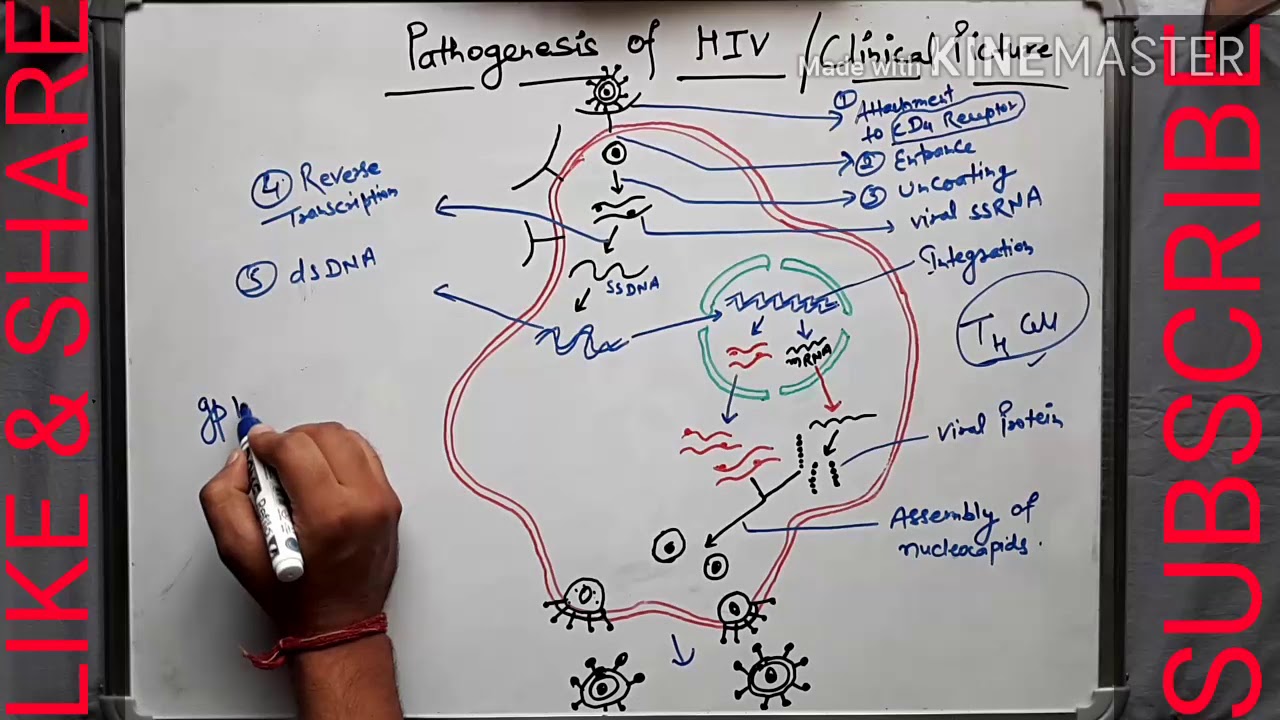 Pathogenesis of HIV / Clinical Picture
Made with KINEMASTER
LIKE & SHARE
SUBSCRIBE
① Attachment
to CD4 Receptor
② Entrance
③ Uncoating
viral SSRNA
Integration
TH Cell
④ Reverse
Transcription
⑤ dsDNA
SSDNA
mRNA
gp
Viral Protein
Assembly of
nucleocapids.